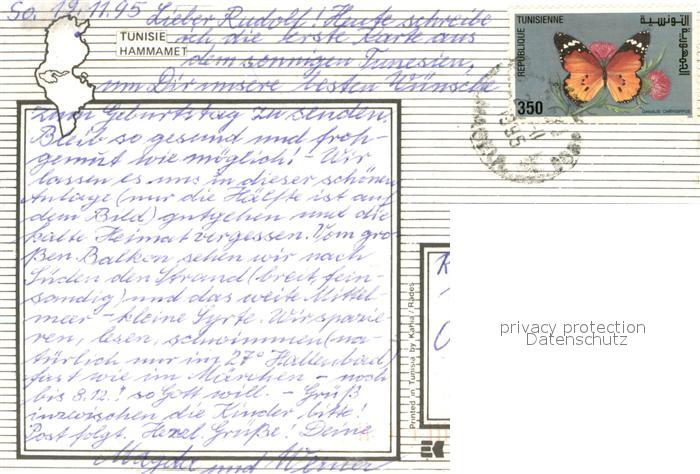 So. 19.11.95 Lieber Rudolf! Heute schreibe
ich die erste Karte aus
dem sonnigen Tunesien,
um Dir unsere besten Wünsche
zum Geburtstag zu senden.
Bleib so gesund und froh-
gemut wie möglich! - Wir
lassen es uns in dieser schönen
Anlage (nur die Hälfte ist auf
dem Bild) gutgehen und die
kalte Heimat vergessen. Vom gro-
ßen Balkon sehen wir nach
Süden den Strand (breit, fein-
sandig) und das weite Mittel-
meer - kleine Syrte. Wir spazie-
ren, lesen, schwimmen (na-
türlich nur im 27° Hallenbad)
fast wie im Märchen - noch
bis 8.12.! so Gott will. - Grüß
inzwischen die Kinder bitte!
Post folgt. Herzl. Grüße! Deine
Magda und Werner
TUNISIE
HAMMAMET
REPUBLIQUE TUNISIENNE
الجمهورية التونسية
350
DANAUS CHRYSIPPUS
Printed in Tunisia by Kahia / Rades
privacy protection
Datenschutz